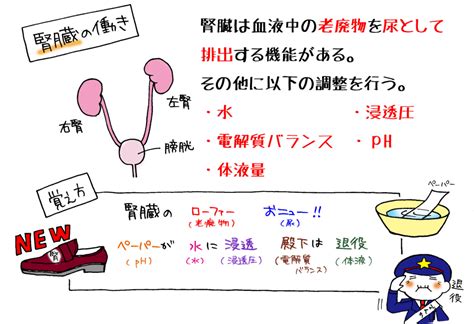 腎臓の働き
腎臓は血液中の老廃物を尿として
排出する機能がある。
その他に以下の調整を行う。
・水 ・浸透圧
・電解質バランス ・pH
・体液量
左腎
右腎
膀胱
覚え方
腎臓の ローファー おニュー!!
(老廃物) (尿)
ペーパーが 水に 浸透 殿下は 退役
(pH) (水) (浸透圧) (電解質バランス) (体液)
NEW
腎
ペーパー
退役